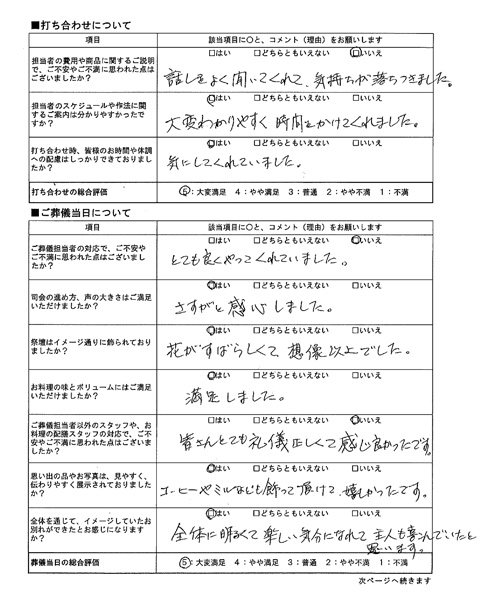 ■打ち合わせについて
項目
該当項目に○と、コメント（理由）をお願いします
担当者の費用や商品に関するご説明
で、ご不安やご不満に思われた点は
ございましたか？
□はい □どちらともいえない □いいえ
話しをよく聞いてくれて、気持ちが落ちつきました。
担当者のスケジュールや作法に関
するご案内は分かりやすかったで
すか？
□はい □どちらともいえない □いいえ
大変わかりやすく時間をかけてくれました。
打ち合わせ時、皆様のお時間や体調
への配慮はしっかりできておりまし
たか？
□はい □どちらともいえない □いいえ
気にしてくれていました。
打ち合わせの総合評価
5：大変満足 4：やや満足 3：普通 2：やや不満 1：不満
■ご葬儀当日について
項目
該当項目に○と、コメント（理由）をお願いします
ご葬儀担当者の対応で、ご不安や
ご不満に思われた点はございまし
たか？
□はい □どちらともいえない □いいえ
とても良くやってくれていました。
司会の進め方、声の大きさはご満足
いただけましたか？
□はい □どちらともいえない □いいえ
さすがと感心しました。
祭壇はイメージ通りに飾られており
ましたか？
□はい □どちらともいえない □いいえ
花がすばらしくて、想像以上でした。
お料理の味とボリュームにはご満足
いただけましたか？
□はい □どちらともいえない □いいえ
満足しました。
ご葬儀担当者以外のスタッフや、お
料理の配膳スタッフの対応で、ご不
安やご不満に思われた点はございま
したか？
□はい □どちらともいえない □いいえ
皆さんとても礼儀正しくて感じ良かったです。
思い出の品やお写真は、見やすく、
伝わりやすく展示されておりました
か？
□はい □どちらともいえない □いいえ
コーヒーやミルなども飾って頂けて、嬉しかったです。
全体を通じて、イメージしていたお
別れができたとお感じになります
か？
□はい □どちらともいえない □いいえ
全体に明るくて楽しい気分になれて主人も喜んでいたと
思います。
葬儀当日の総合評価
5：大変満足 4：やや満足 3：普通 2：やや不満 1：不満
次ページへ続きます